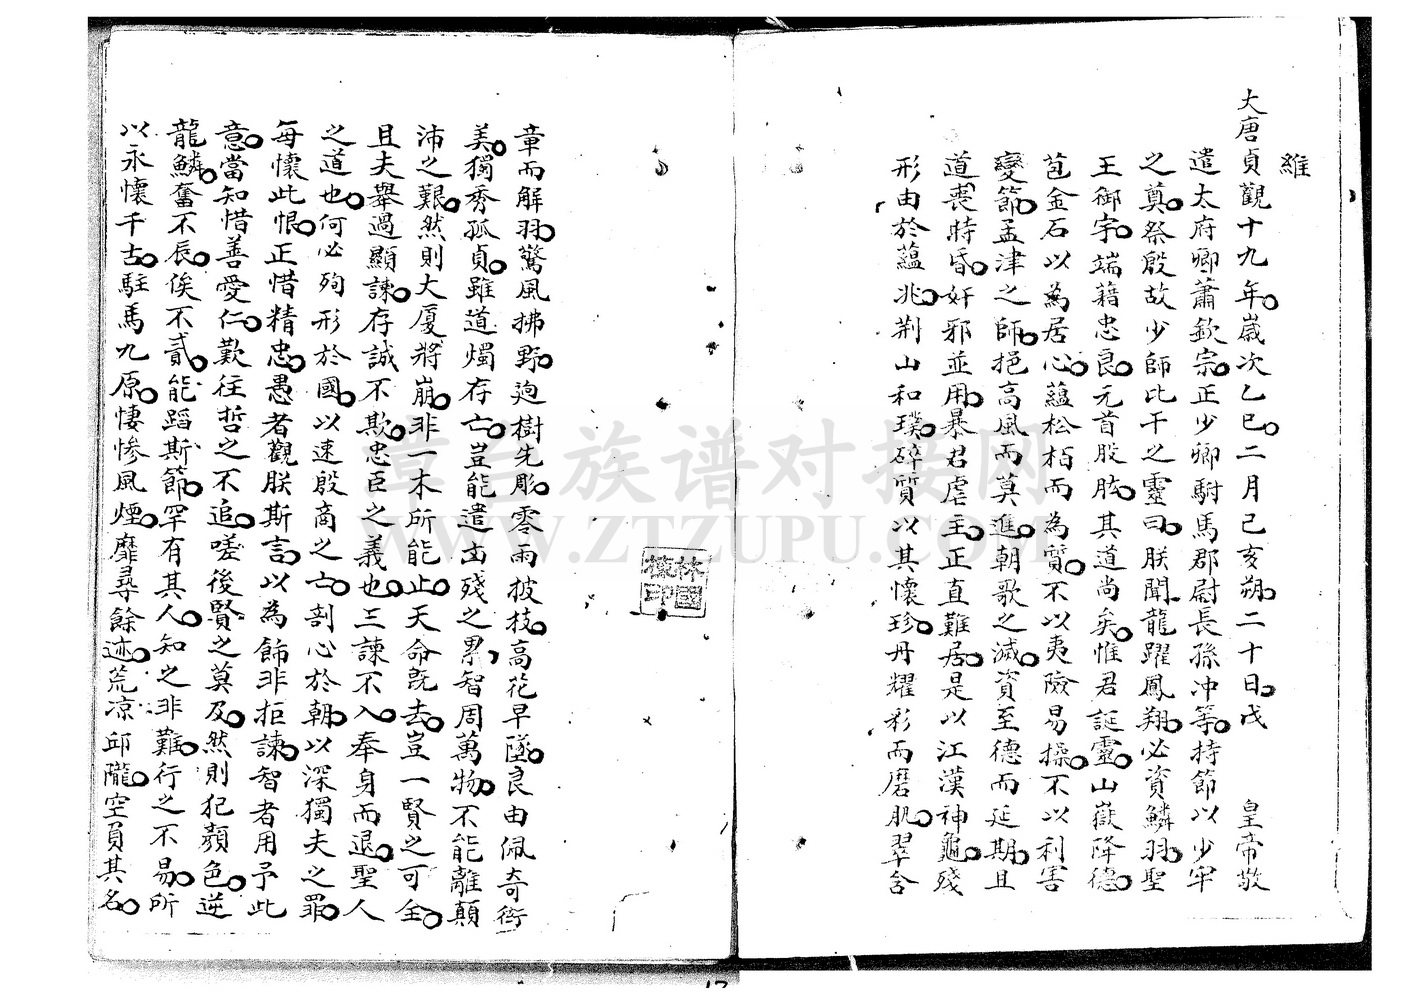 維
大唐貞觀十九年歲次乙巳二月己亥朔二十日戊 皇帝敬
遣太府卿蕭欽宗正少卿駙馬郡尉長孫冲等持節以少牢
之奠祭殷故少師比干之靈曰朕聞龍躍鳳翔必資鱗羽聖
王御宇端藉忠良元首股肱其道尚矣惟君誕靈山嶽降德
苞金石以為居心蘊松栢而為質不以夷險易操不以利害
變節孟津之師挹高風而莫進朝歌之滅資至德而延期且
道喪時昏奸邪並用暴君虐主正直難居是以江漢神龜殘
形由於蘊兆荆山和璞碎質以其懷珍丹耀彩而磨肌翠含
章而解羽驚風拂野迥樹先彫零雨披技高花早墜良由佩奇衒
美獨秀孤貞雖道燭存亡豈能遣出殘之累智周萬物不能離顛
沛之艱然則大廈將崩非一木所能止天命既去豈一賢之可全
且夫舉過顯諫存誠不欺忠臣之義也三諫不入奉身而退聖人
之道也何必殉形於國以速殷商之亡剖心於朝以深獨夫之罪
每懷此恨正惜精忠愚者觀朕斯言以為飾非拒諫智者用予此
意當知惜善愛仁歎往哲之不追嗟後賢之莫及然則犯顏色逆
龍鱗奮不辰俟不貳能蹈斯節罕有其人知之非難行之不易所
以永懷千古駐馬九原悽慘風煙靡尋餘迹荒凉邱隴空員其名
林國
棟印
章台族谱对接网
WWW.ZTZUPU.COM